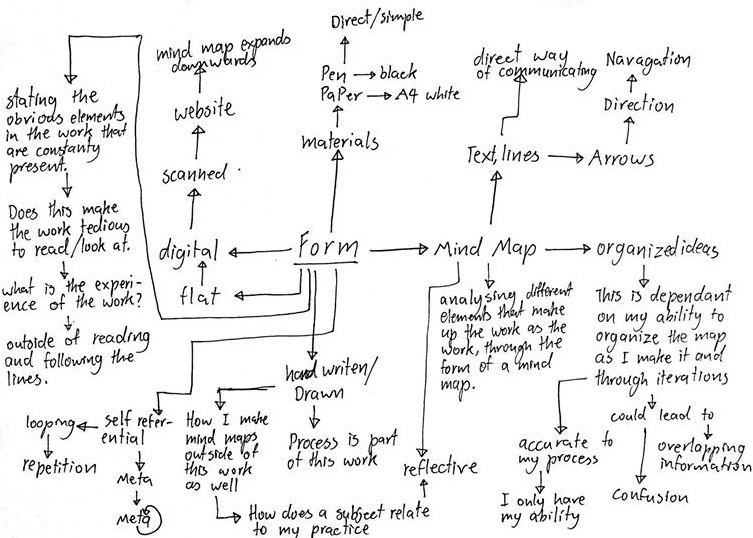 Direct/simple
Pen
black
PaPer
A4 white
materials
mind map expands
downwards
website
scanned
digital
flat
Form
stating the
obvious elements
in the work that
are constanty
present.
Does this make
the work tedious
to read/look at.
what is the experi-
ence of the work?
outside of reading
and following the
lines.
direct way
of communicating
Navagation
Direction
Text, lines
Arrows
Mind Map
organized ideas
analysing different
elements that make
up the work as the
work, through the
form of a mind
map.
This is dependant
on my ability to
organize the map
as I make it and
through iterations
could lead to
overlapping
information
confusion
accurate to
my process
I only have
my ability
hand writen/
Drawn
Process is part
of this work
How I make
mind maps
outside of
this work
as well
How does a subject relate
to my practice
reflective
self refer-
ential
looping
repetition
Meta
Meta